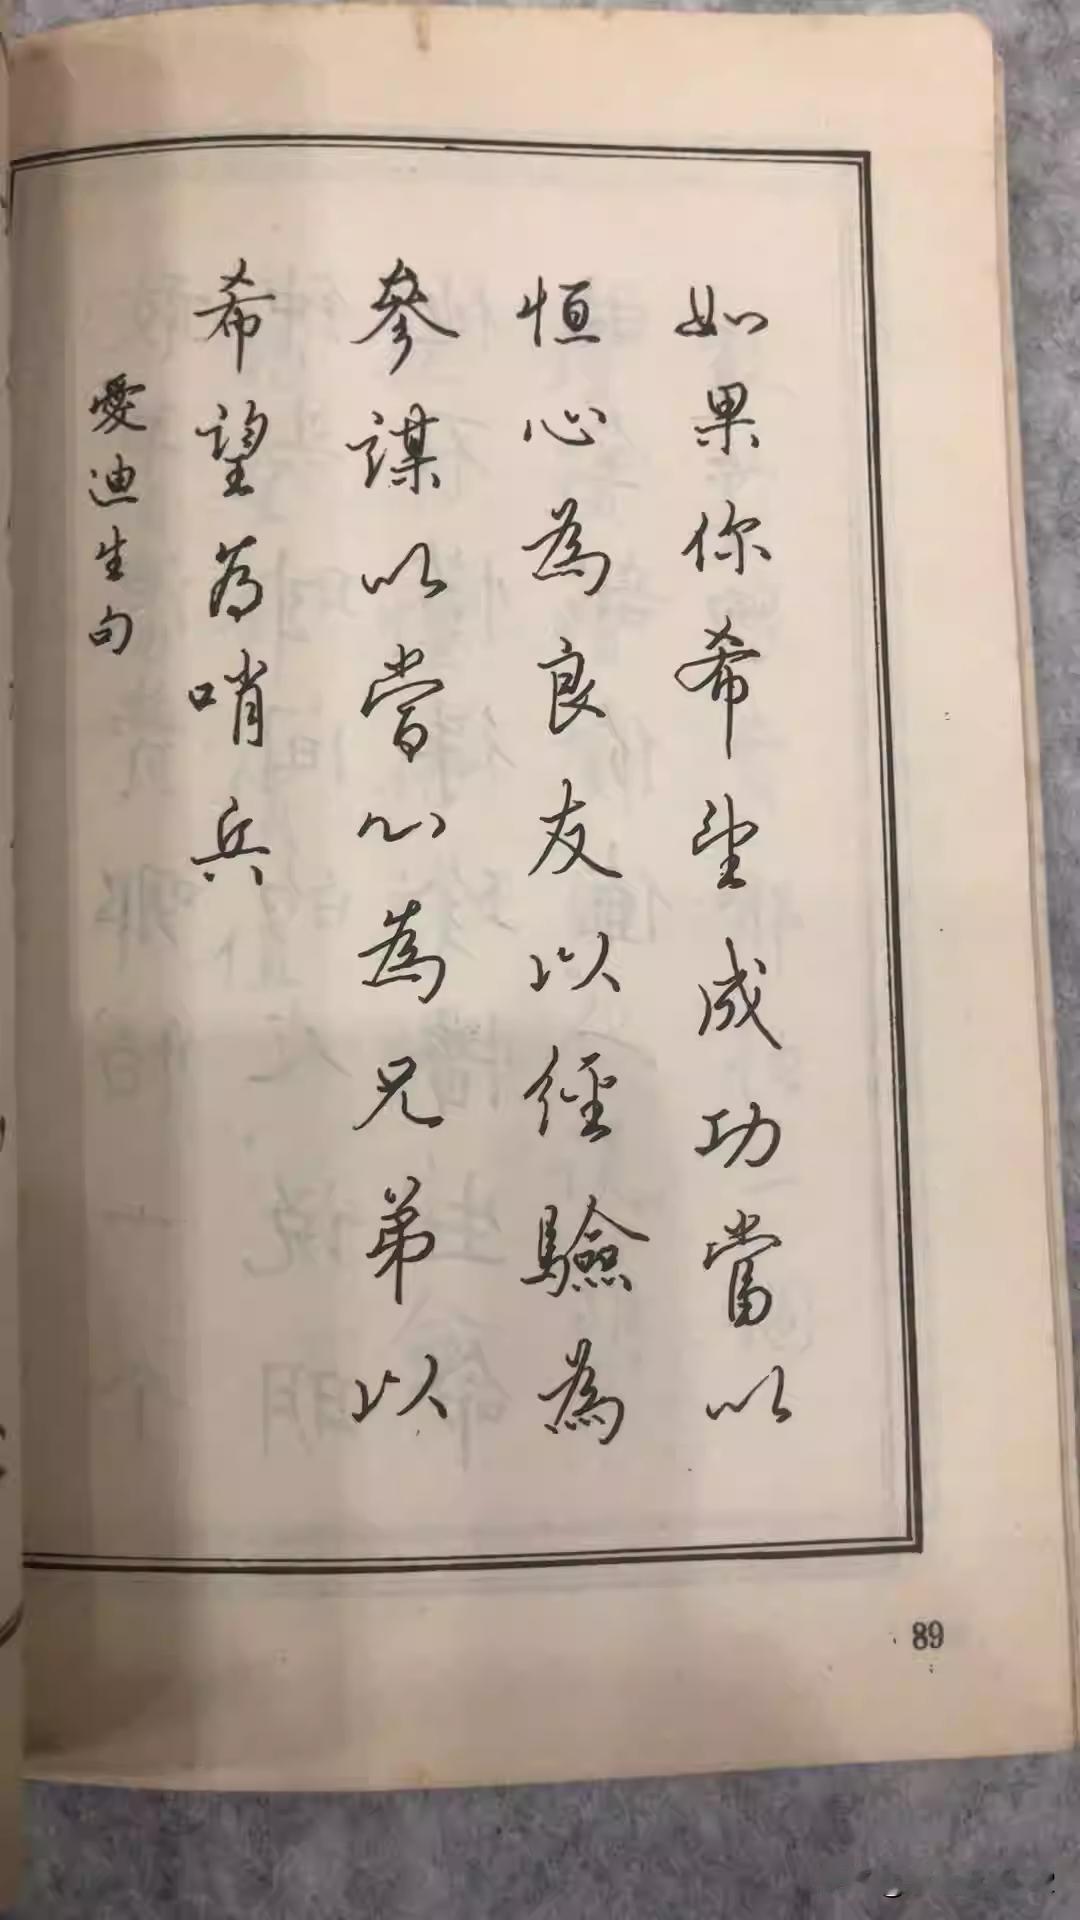 如果你希望成功當以
恒心為良友以經驗為
參謀以當心為兄弟以
希望為哨兵
愛迪生句
89